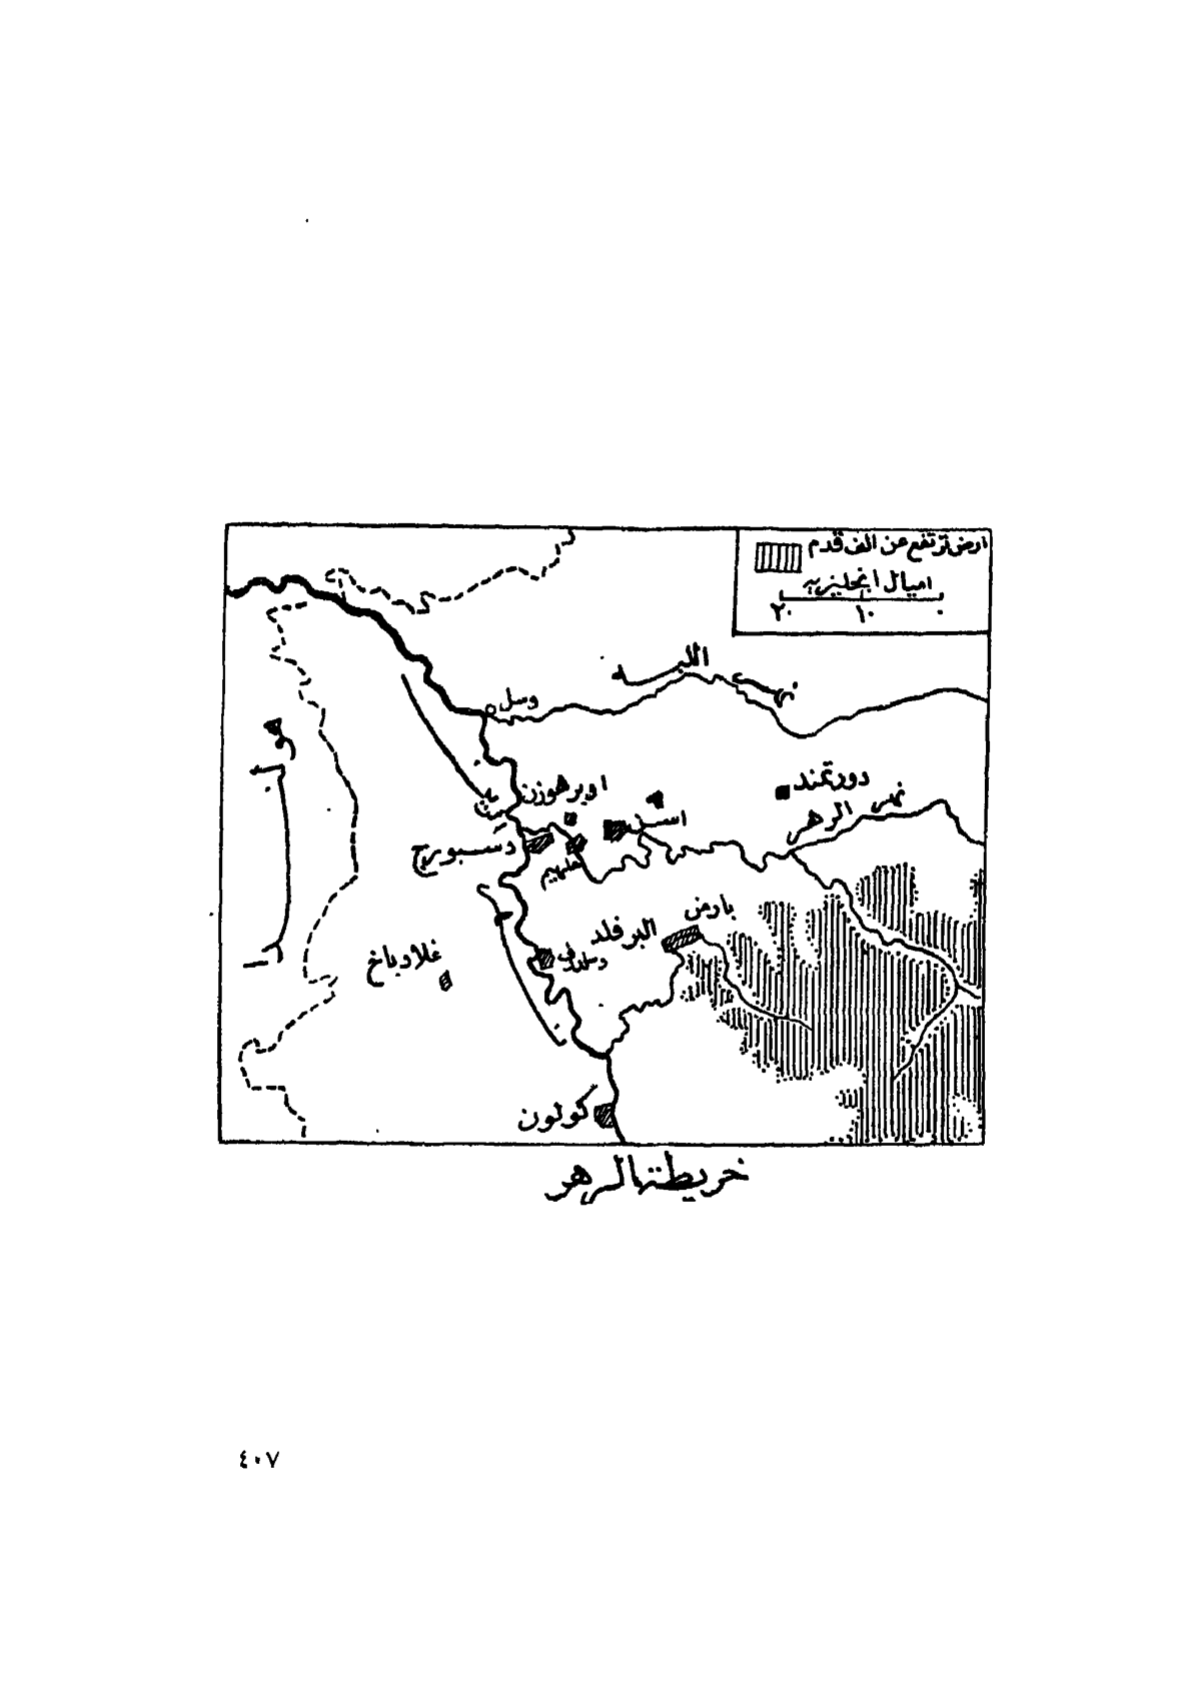 ارض ترتفع عن الف قدم
اميال انجليزيه
٢٠ ١٠ ٠
نهر اللبه
وسل
هولندا
اوبرهوزن
اسن
دورتمند
نهر الرهر
دسبورج
ملهيم
بارمن
البرفلد
دسلدرف
غلادباخ
كولون
خريطة الرهر
٤٠٧